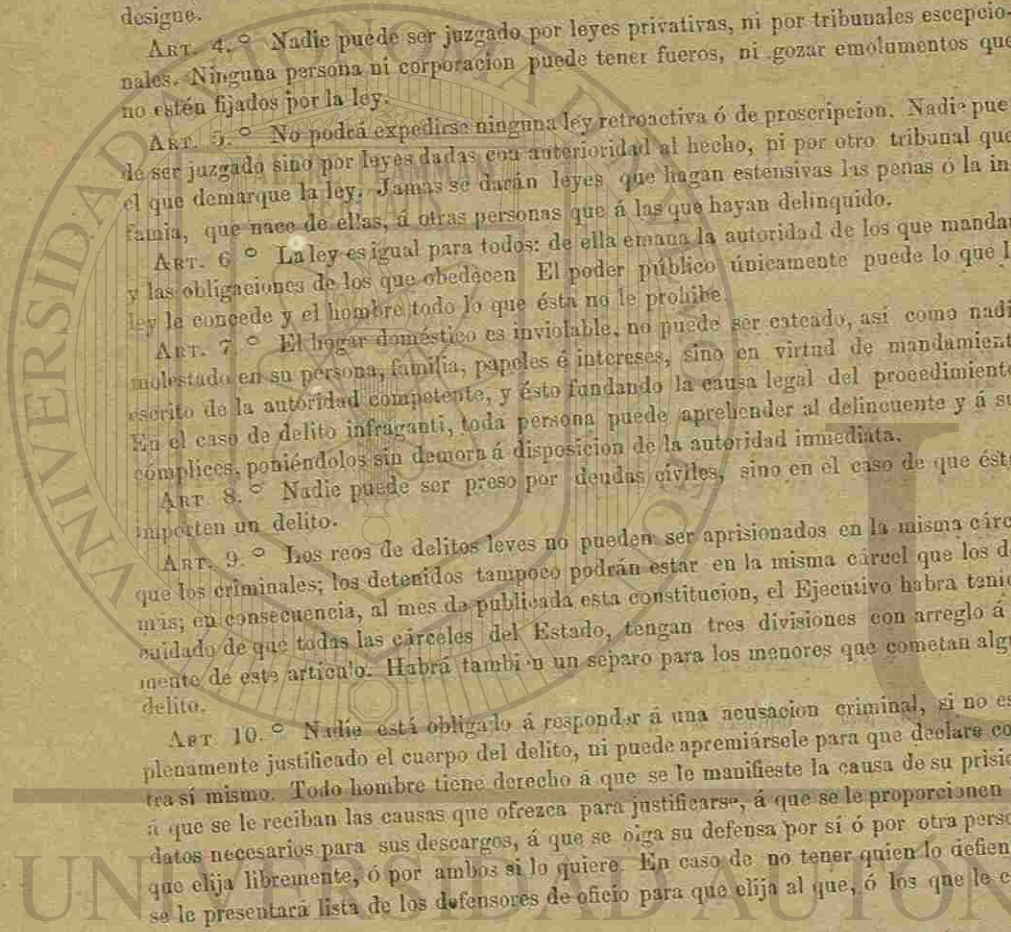 desigue.
ART. 4.º Nadie puede ser juzgado por leyes privativas, ni por tribunales escepcio-
nales. Ninguna persona ni corporacion puede tener fueros, ni gozar emolumentos que
no estén fijados por la ley.
ART. 5.º No podrá expedirse ninguna ley retroactiva ó de proscripcion. Nadie pue
de ser juzgado sino por leyes dadas con anterioridad al hecho, ni por otro tribunal que
el que demarque la ley. Jamas se darán leyes que hagan estensivas las penas ó la in
famia, que nace de ellas, á otras personas que á las que hayan delinquido.
ART. 6º La ley es igual para todos: de ella emana la autoridad de los que mandan
y las obligaciones de los que obedecen El poder público únicamente puede lo que l
ley le concede y el hombre todo lo que ésta no le prohibe
ART. 7.º El hogar doméstico es inviolable, no puede ser cateado, así como nadi
molestado en su persona, familia, papeles é intereses, sino en virtud de mandamient
escrito de la autoridad competente, y ésto fundando la causa legal del procedimiento
En el caso de delito infraganti, toda persona puede aprehender al delincuente y á su
cómplices, poniéndolos sin demora á disposicion de la autoridad inmediata.
ART 8.º Nadie puede ser preso por deudas civiles, sino en el caso de que ést
importen un delito.
ART. 9.º Los reos de delitos leves no pueden ser aprisionados en la misma cárc
que los criminales; los detenidos tampoco podrán estar en la misma cárcel que los d
mas; en consecuencia, al mes de publicada esta constitucion, el Ejecutivo habrá tenid
cuidado de que todas las cárceles del Estado, tengan tres divisiones con arreglo á
mente de este artículo. Habrá tambi n un separo para los menores que cometan algu
delito.
ART 10.º Nadie está obligado á responder á una acusacion criminal, si no es
plenamente justificado el cuerpo del delito, ni puede apremiársele para que declare co
tra sí mismo. Todo hombre tiene derecho á que se le manifieste la causa de su prisio
á que se le reciban las causas que ofrezca para justificarse, á que se le proporcionen
datos necesarios para sus descargos, á que se oiga su defensa por sí ó por otra perso
que elija libremente, ó por ambos si lo quiere. En caso de no tener quien lo defien
se le presentará lista de los defensores de oficio para que elija al que, ó los que le c
UNIVERSIDAD AUTÓN